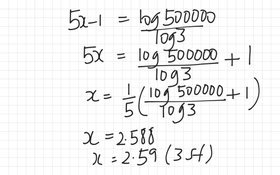 5x-1 = log 500000 / log3
5x = log 500000 / log3 + 1
x = 1/5 (log 500000 / log3 + 1)
x = 2.588
x = 2.59 (3sf)